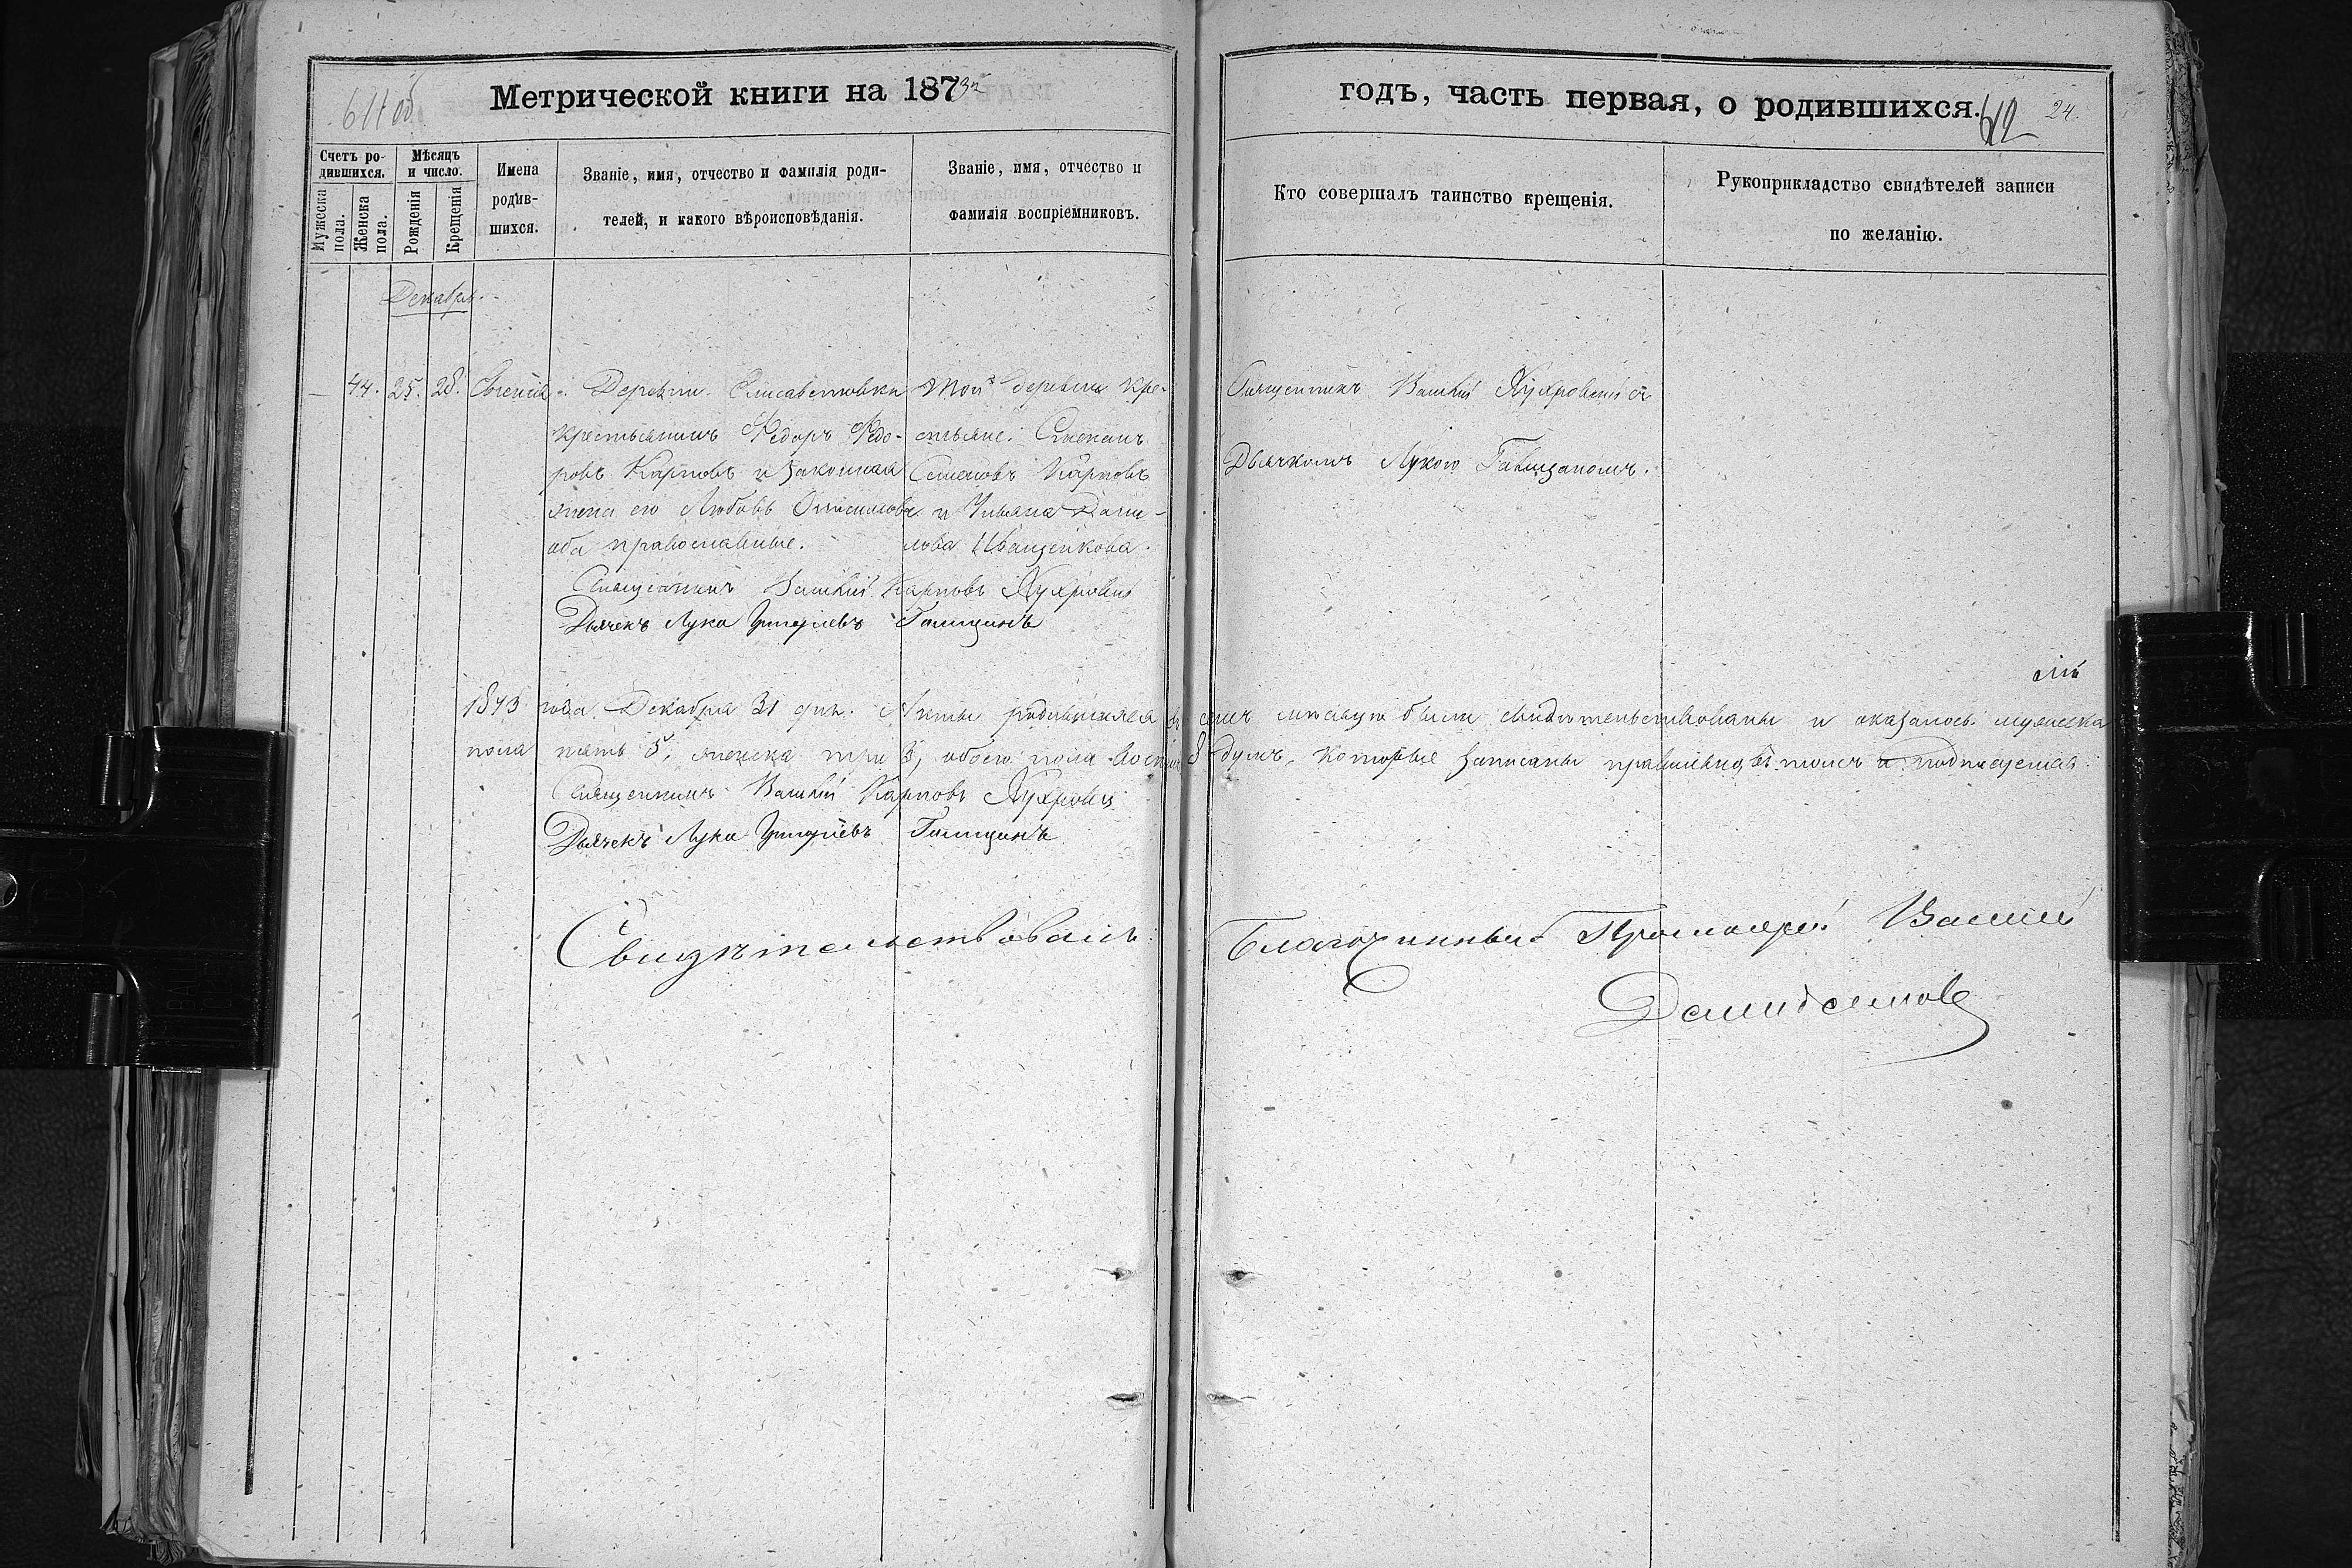 Метрической книги на 1873й
годъ, часть первая, о родившихся.
612
24.
Счетъ ро-
дившихся.
Мужеска
пола.
Женска
пола.
Мѣсяцъ
и число.
Рожденія
Крещенія
Имена
родив-
шихся.
Званіе, имя, отчество и фамилія роди-
телей, и какого вѣроисповѣданія.
Званіе, имя, отчество и
фамилія воспріемниковъ.
Кто совершалъ таинство крещенія.
Рукоприкладство свидѣтелей записи
по желанію.
Декабрь.
44. 25. 28. Евгенія.
Деревни Елисаветовки
крестьянинъ Федоръ Федо-
ровъ Карповъ и законная
жена его Любовь
оба православные.
Той деревни кре-
стьяне: Степанъ
Семеновъ Карповъ
и Ульяна Дани-
лова Иващенкова.
Священникъ Василій съ
Дьячкомъ Лукою
Священникъ Василій Карповъ
Дьячекъ Лука Григоріевъ Галицинъ
1873 года Декабря 31 дня. Акты родившихся въ семъ мѣсяцѣ были свидѣтельствованы и оказалось мужеска
пола пять 5, женска три 3, обоего пола восемь 8 душъ, которые записаны правильно, въ томъ и подписуемся.
Священникъ Василій Карповъ
Дьячекъ Лука Григоріевъ Галицинъ
Свидѣтельствовалъ:
Благочинный Протоіерей Василій